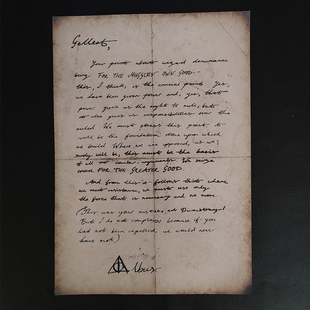 Gellert,
Your point about wizard dominance
being FOR THE MUGGLES' OWN GOOD—
this, I think, is the crucial point. Yes,
we have been given power and, yes, that
power gives us the right to rule, but
it also gives us responsibilities over the
ruled. We must stress this point, it
will be the foundation stone upon which
we build. Where we are opposed, as we
surely will be, this must be the basis
of all our counter-arguments. We seize
control FOR THE GREATER GOOD.
And from this it follows that where
we meet resistance, we must use only
the force that is necessary and no more.
(This was your mistake at Durmstrang!
But I do not complain, because if you
had not been expelled, we would never
have met.)
Albus